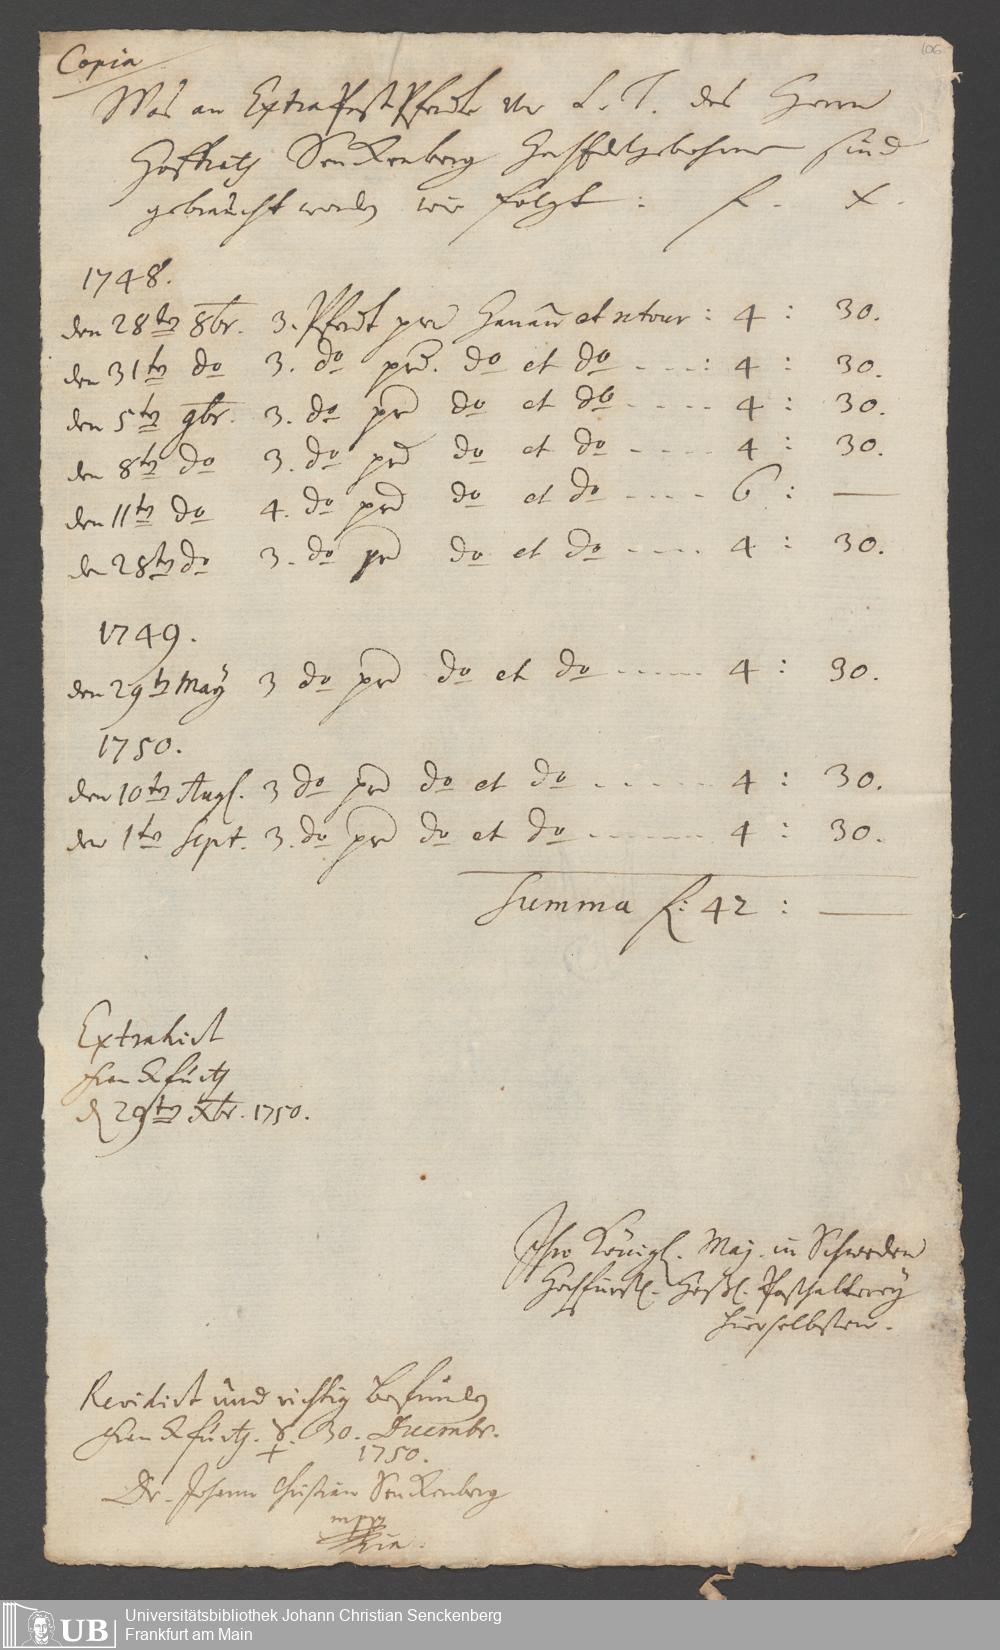 106
Copia
Was an Extra Post Pferdte vor S. T. des Herrn
Hoffrath Senckenberg Hochedelgebohrne sind
gebraucht worden wie folgt : f. X.
1748.
den 28ten 8br. 3. Pferdt per Hanau et retour : 4 : 30.
den 31ten do 3. do per. do et do - - - : 4 : 30.
den 5ten 9br. 3. do per do et do - - - - 4 : 30.
den 8ten do 3. do per do et do - - - - 4 : 30.
den 11ten do 4. do per do et do - - - - 6 : —
den 28ten do 3. do per do et do - - - - 4 : 30.
1749.
den 29ten May 3 do per do et do - - - - - 4 : 30.
1750.
den 10ten Aug. 3 do per do et do - - - - - 4 : 30.
den 1ten Sept. 3. do per do et do - - - - - - 4 : 30.
Summa f: 42 : —
Extrahirt
Franckfurth
d 29ten Xbr. 1750.
Ihro Königl. Maj. in Schweden
Hochfürstl. Heßl. Posthalterey
hierselbsten.
Revidirt und richtig befunden
Franckfurth. d. 30. Decembr.
1750.
Dr. Johann Christian Senckenberg
mppria.
UB
Universitätsbibliothek Johann Christian Senckenberg
Frankfurt am Main